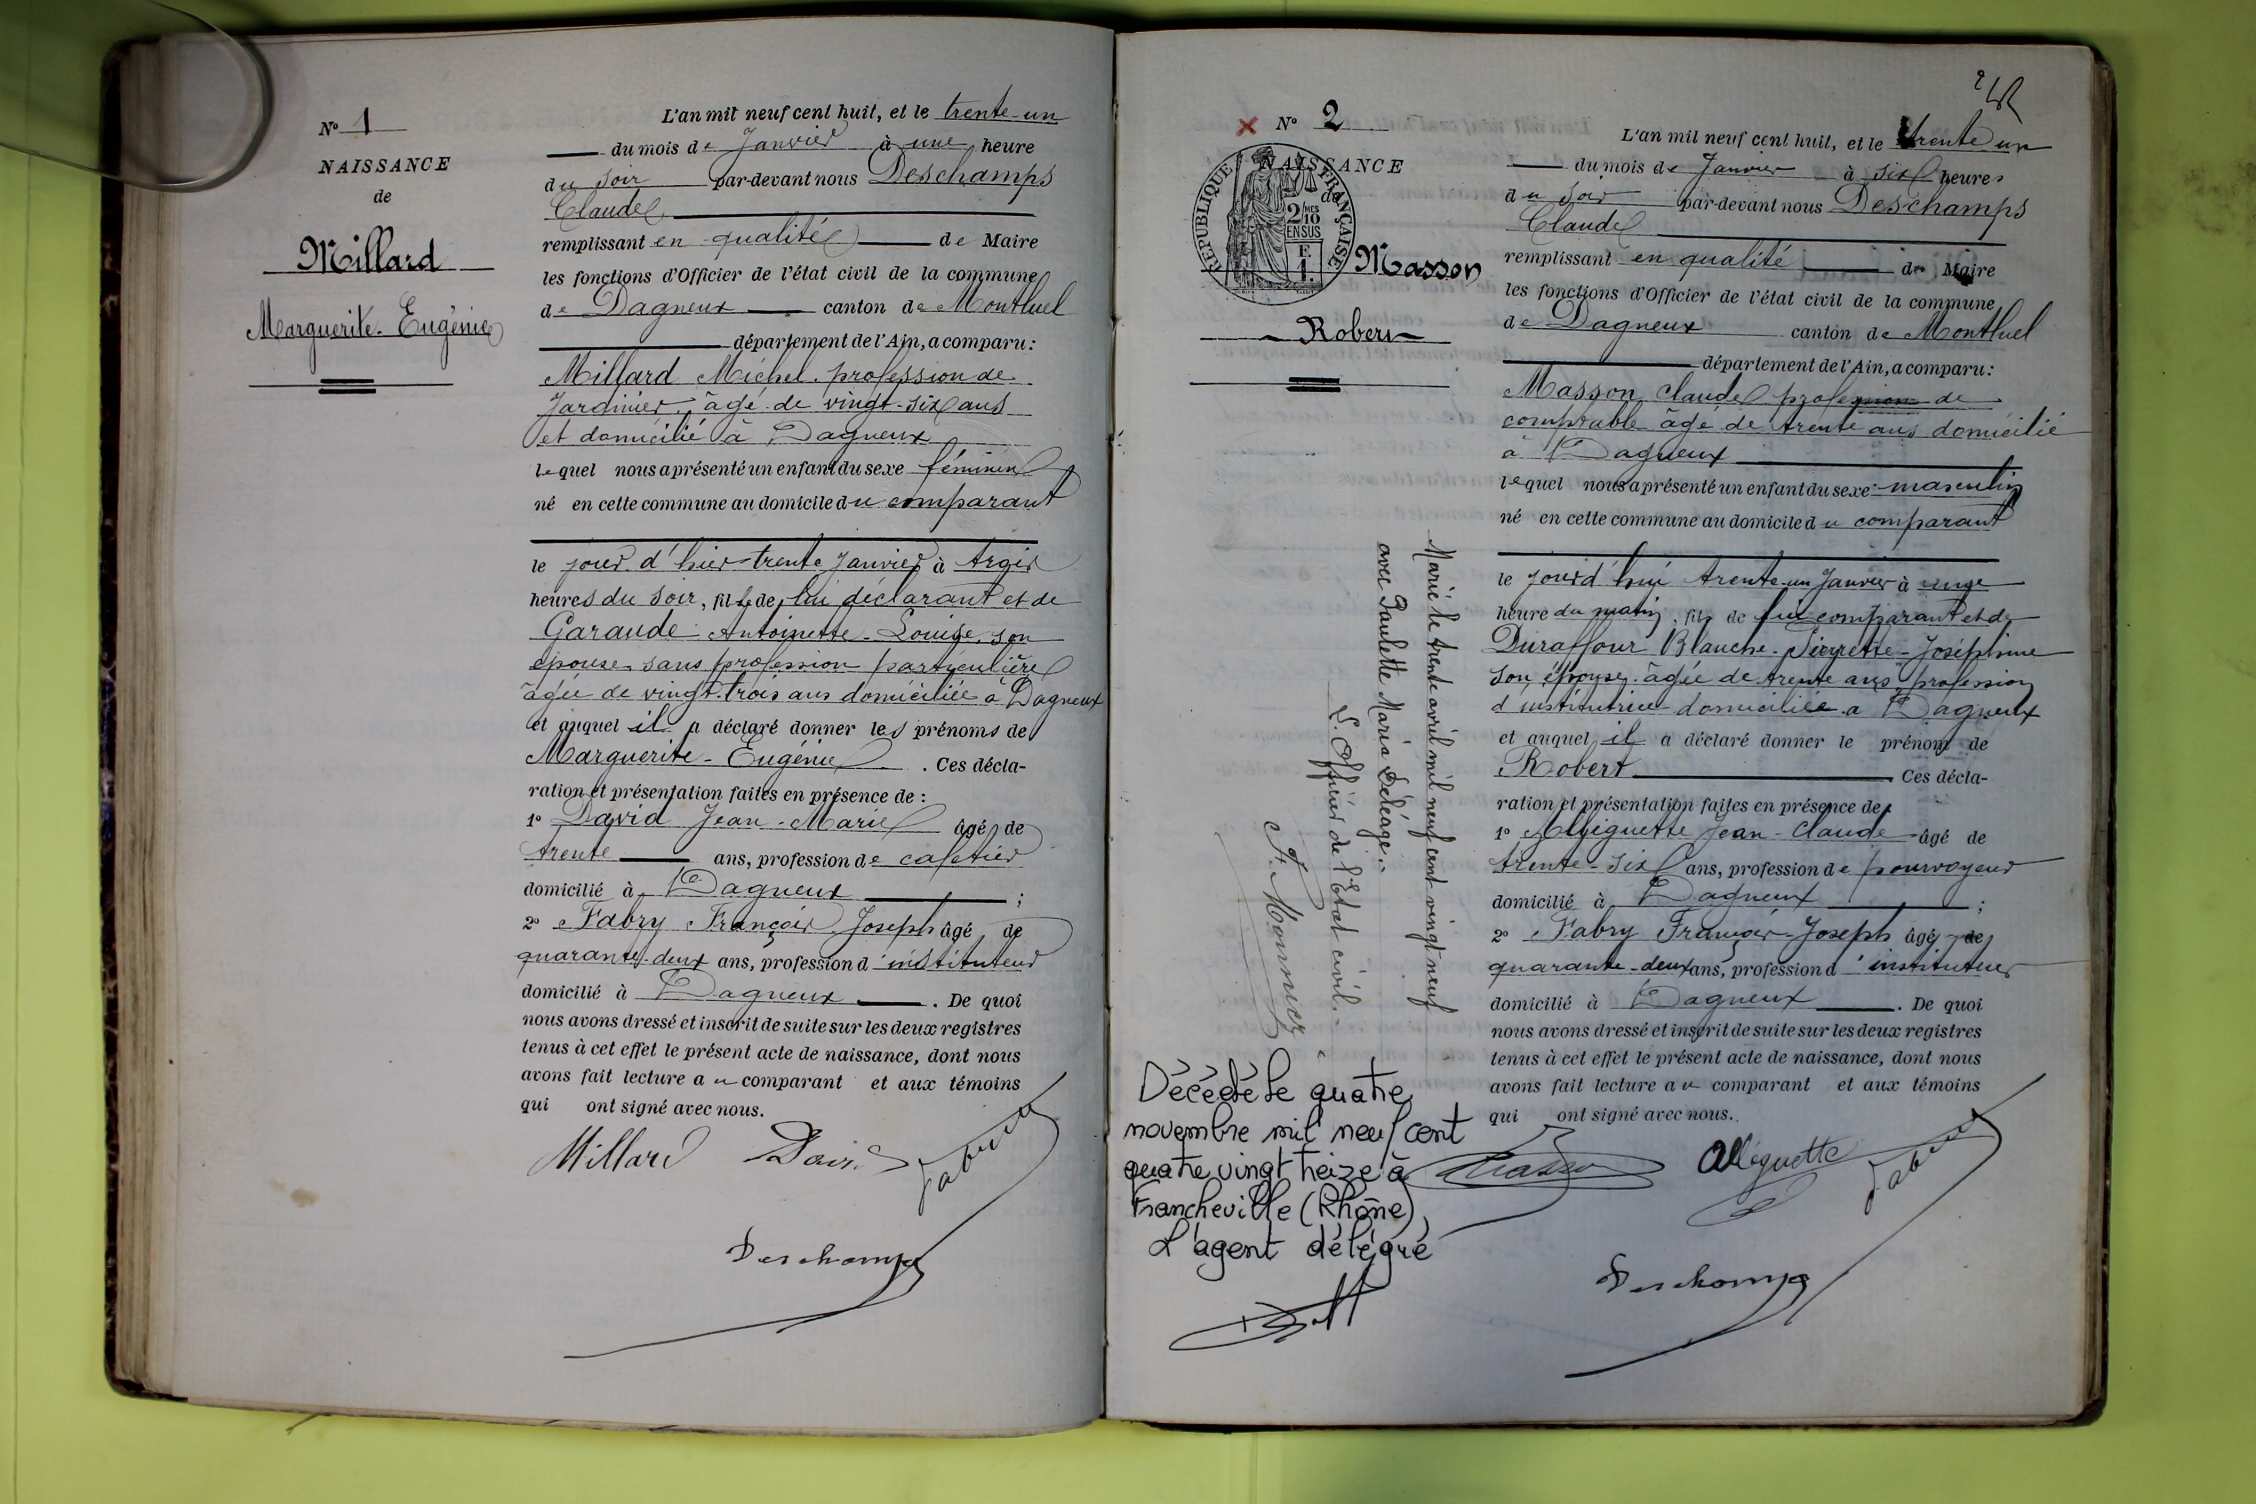 N° 1
NAISSANCE
de
Millard
Marguerite-Eugénie
L'an mil neuf cent huit, et le trente-un
du mois de Janvier à une heure
du soir par-devant nous Deschamps
Claude
remplissant en qualité de Maire
les fonctions d'Officier de l'état civil de la commune
de Dagneux canton de Montluel
département de l'Ain, a comparu :
Millard Michel profession de
Jardinier, âgé de vingt-six ans
et domicilié à Dagneux
lequel nous a présenté un enfant du sexe féminin
né en cette commune au domicile du comparant
le jour d'hier trente Janvier à
heures du soir, fille de lui déclarant et de
Garaude Antoinette-Louise, son
épouse, sans profession particulière
âgée de vingt-trois ans domiciliée à Dagneux
et auquel il a déclaré donner les prénoms de
Marguerite-Eugénie. Ces décla-
ration et présentation faites en présence de :
1° David Jean-Marie âgé de
trente ans, profession de cafetier
domicilié à Dagneux ;
2° Fabry François Joseph âgé de
quarante-deux ans, profession d'instituteur
domicilié à Dagneux. De quoi
nous avons dressé et inscrit de suite sur les deux registres
tenus à cet effet le présent acte de naissance, dont nous
avons fait lecture au comparant et aux témoins
qui ont signé avec nous.
Millard David Fabry
Deschamps
N° 2
NAISSANCE
de
RÉPUBLIQUE FRANÇAISE
2/10 MES
EN SUS
F.
1.
Masson
Robert
Marié le trente avril mil neuf cent vingt neuf
avec Paulette Maria Deléage.
L'Officier de l'Etat civil.
Décédé le quatre
novembre mil neuf cent
quatre vingt treize à
Francheville (Rhône),
L'agent délégué
L'an mil neuf cent huit, et le trente un
du mois de Janvier à six heures
du soir par-devant nous Deschamps
Claude
remplissant en qualité de Maire
les fonctions d'Officier de l'état civil de la commune
de Dagneux canton de Montluel
département de l'Ain, a comparu :
Masson Claude profession de
comptable âgé de trente ans domicilié
à Dagneux
lequel nous a présenté un enfant du sexe masculin
né en cette commune au domicile du comparant
le jourd'hui trente-un Janvier à une
heure du matin, fils de lui comparant et de
Duraffour Blanche-Pierrette-Joséphine
son épouse, âgée de trente ans, profession
d'institutrice domiciliée à Dagneux
et auquel il a déclaré donner le prénom de
Robert Ces décla-
ration et présentation faites en présence de :
1° Alléguette Jean-Claude âgé de
trente-six ans, profession de pourvoyeur
domicilié à Dagneux ;
2° Fabry François-Joseph âgé de
quarante-deux ans, profession d'instituteur
domicilié à Dagneux. De quoi
nous avons dressé et inscrit de suite sur les deux registres
tenus à cet effet le présent acte de naissance, dont nous
avons fait lecture au comparant et aux témoins
qui ont signé avec nous.
Masson Alléguette Fabry
Deschamps